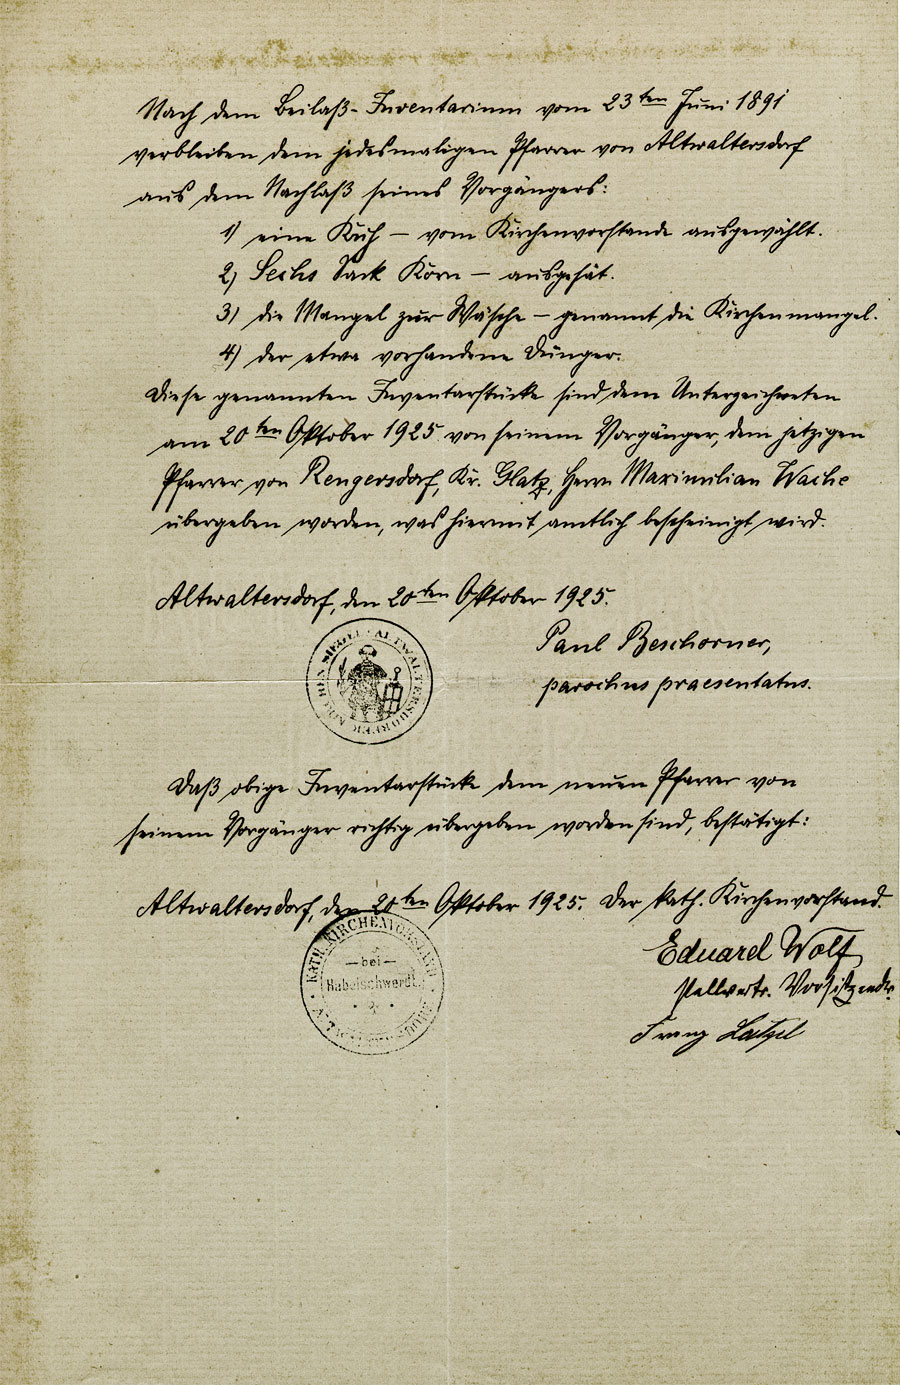 Nach dem Beilaß-Inventarium vom 23ten Juni 1891
verbleiben dem jedesmaligen Pfarrer von Altwaltersdorf
aus dem Nachlaß seines Vorgängers:
1) eine Kuh – vom Kirchenvorstande ausgewählt.
2) Sechs Sack Korn – ausgesät.
3) die Mangel zur Wäsche – genannt die Kirchenmangel.
4) der etwa vorhandene Dünger.
Diese genannten Inventarstücke sind dem Unterzeichneten
am 20ten Oktober 1925 von seinem Vorgänger, dem jetzigen
Pfarrer von Rengersdorf, Kr. Glatz, Herrn Maximilian Wache
übergeben worden, was hiermit amtlich bescheinigt wird.
Altwaltersdorf, den 20ten Oktober 1925.
Paul Beschorner,
parochus praesentatus.
KIRCHEN SIEGEL · ALTWALTERSDORFER
Daß obige Inventarstücke dem neuen Pfarrer von
seinem Vorgänger richtig übergeben worden sind, bestätigt:
Altwaltersdorf, den 20ten Oktober 1925. Der kath. Kirchenvorstand.
KATH. KIRCHENVORSTAND
– bei –
Habelschwerdt
Eduard Wolf
stellvertr. Vorsitzender.
Franz Latzel